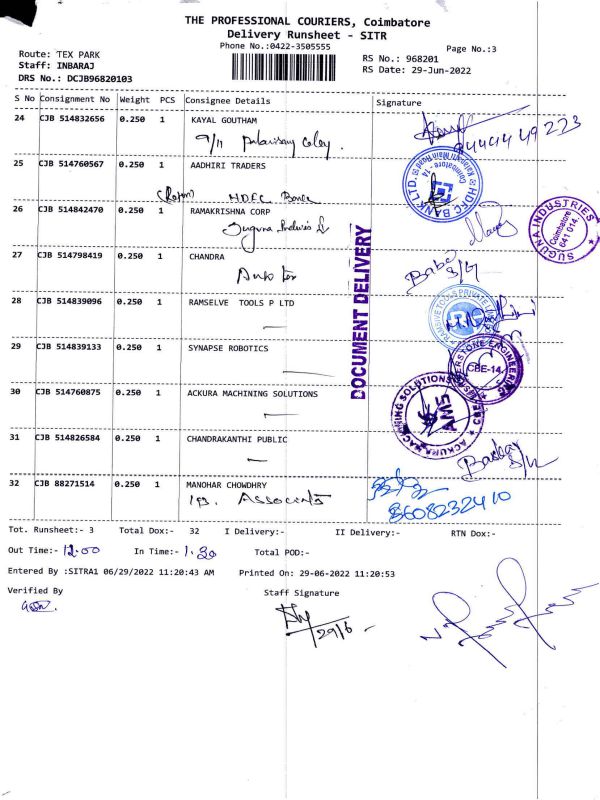 THE PROFESSIONAL COURIERS, Coimbatore
Delivery Runsheet - SITR
Phone No.:0422-3505555
Page No.:3
Route: TEX PARK
RS No.: 968201
Staff: INBARAJ
RS Date: 29-Jun-2022
DRS No.: DCJB96820103
S No Consignment No Weight PCS Consignee Details Signature
24 CJB 514832656 0.250 1 KAYAL GOUTHAM
9/11
9444449223
25 CJB 514760567 0.250 1 AADHIRI TRADERS
HDFC Bank
HDFC BANK LTD.
Coimbatore - 14
26 CJB 514842470 0.250 1 RAMAKRISHNA CORP
Suguna
SUGUNA INDUSTRIES
Coimbatore
641 014.
27 CJB 514798419 0.250 1 CHANDRA
Babu
DOCUMENT DELIVERY
28 CJB 514839096 0.250 1 RAMSELVE TOOLS P LTD
29 CJB 514839133 0.250 1 SYNAPSE ROBOTICS
ENGINEERING
CBE-14
30 CJB 514760875 0.250 1 ACKURA MACHINING SOLUTIONS
ACKURA MACHINING SOLUTIONS
AMS
31 CJB 514826584 0.250 1 CHANDRAKANTHI PUBLIC
32 CJB 88271514 0.250 1 MANOHAR CHOWDHRY
Associats
8608232410
Tot. Runsheet:- 3 Total Dox:- 32 I Delivery:- II Delivery:- RTN Dox:-
Out Time:- 12.00 In Time:- 1.30 Total POD:-
Entered By :SITRA1 06/29/2022 11:20:43 AM Printed On: 29-06-2022 11:20:53
Verified By Staff Signature
29/6